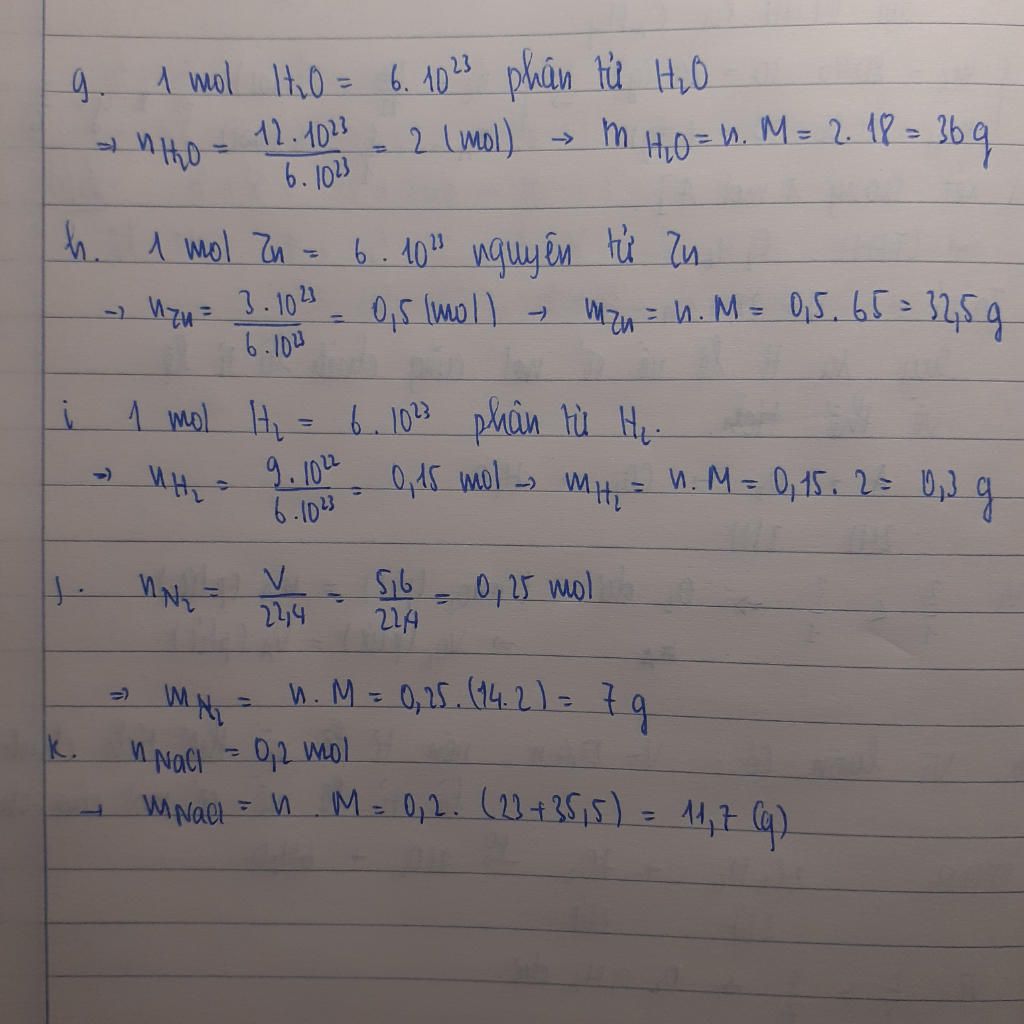 g. 1 mol H₂O = 6.10²³ phân tử H₂O
⇒ nH₂O = 12.10²³/6.10²³ = 2 (mol) → mH₂O = n.M = 2.18 = 36 g
h. 1 mol Zn = 6.10²³ nguyên tử Zn
→ nZn = 3.10²³/6.10²³ = 0,5 (mol) → mZn = n.M = 0,5.65 = 32,5 g
i 1 mol H₂ = 6.10²³ phân tử H₂.
⇒ nH₂ = 9.10²²/6.10²³ = 0,15 mol → mH₂ = n.M = 0,15.2 = 0,3 g
j. nN₂ = V/22,4 = 5,6/22,4 = 0,25 mol
⇒ mN₂ = n.M = 0,25.(14.2) = 7 g
k. nNaCl = 0,2 mol
→ mNaCl = n.M = 0,2.(23+35,5) = 11,7 (g)